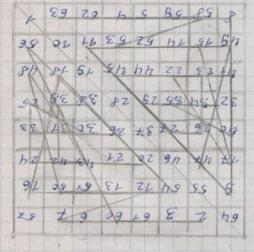 64 2 3 61 60 6 7 57
9 55 54 12 13 51 50 16
17 47 46 20 21 43 42 24
40 26 27 37 36 30 31 33
32 34 35 29 28 38 39 25
41 23 22 44 45 19 18 48
49 15 14 52 53 11 10 56
8 58 59 5 4 62 63 1